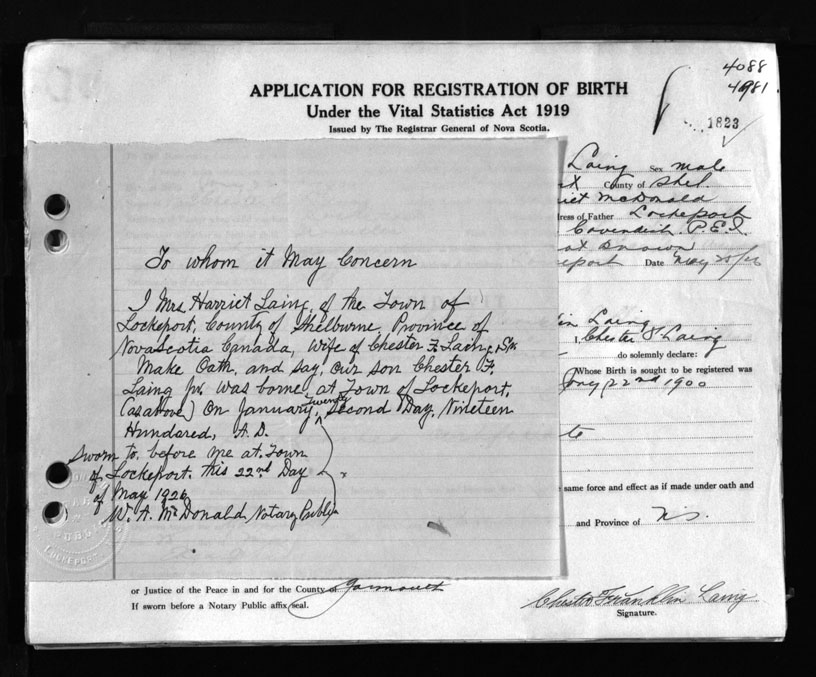 4088
4981
APPLICATION FOR REGISTRATION OF BIRTH
Under the Vital Statistics Act 1919
Issued by The Registrar General of Nova Scotia.
1823
Laing Sex male
County of Shel.
McDonald
ress of Father Lockeport
Cavendish P.E.I.
eport Date May 25/26
To whom it May Concern
I Mrs Harriet Laing, of the Town of
Lockeport, County of Shelburne, Province of
Nova Scotia Canada, Wife of Chester F. Laing, Sr.
Make Oath, and say, our son Chester F.
Laing Jr. was borne, at Town of Lockeport,
(as above) On January, Twenty Second Day, Nineteen
Hundared, A.D.
Sworn to before me at Town
of Lockeport, this 22nd Day
of May 1926
W. A. McDonald Notary Public
Laing
Chester F Laing
do solemnly declare:
Whose Birth is sought to be registered was
22nd 1900
same force and effect as if made under oath and
and Province of N.S.
LOCKEPORT
or Justice of the Peace in and for the County of Yarmouth
If sworn before a Notary Public affix seal.
Chester Franklin Laing
Signature.